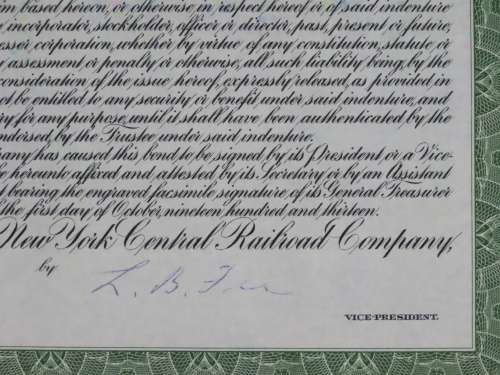 based hereon, or otherwise, in respect hereof or of said indenture
incorporator, stockholder, officer or director, past, present or future,
esser corporation, whether by virtue of any constitution, statute or
assessment or penalty or otherwise, all such liability being, by the
consideration of the issue hereof, expressly released, as provided in
ot be entitled to any security or benefit under said indenture, and
ry for any purpose, until it shall have been authenticated by the
endorsed, by the Trustee under said indenture.
pany has caused this bond to be signed by its President or a Vice-
be hereunto affixed and attested by its Secretary or by an Assistant
bearing the engraved facsimile signature, of its General Treasurer
the first day of October, nineteen hundred and thirteen.
New York Central Railroad Company,
by
L. B.
VICE-PRESIDENT.